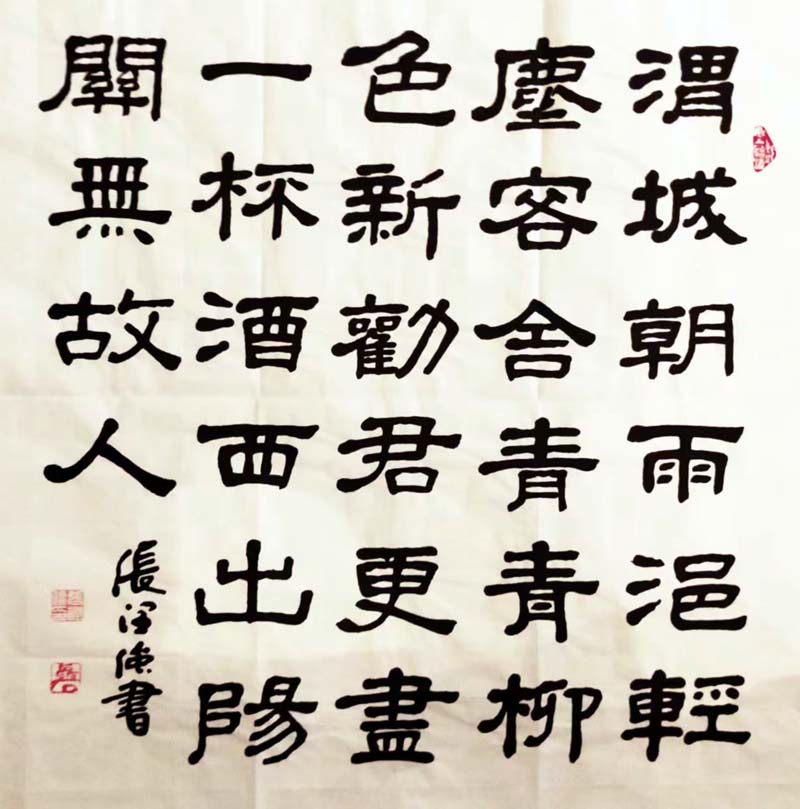 渭城朝雨浥輕
塵客舍青青柳
色新勸君更盡
一杯酒西出陽
關無故人
張書